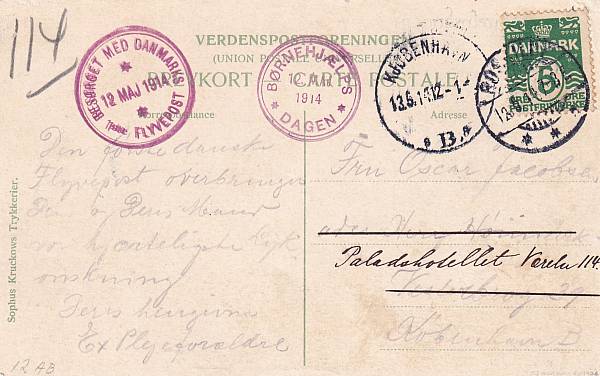 114
VERDENSPOSTFORENINGEN
(UNION POSTALE UNIVERSELLE)
BREVKORT - CARTE POSTALE
Correspondance
Adresse
BESØRGET MED DANMARKS
12 MAJ 1914
FLYVEPOST
BØRNEHJÆLPS
12 MAJ
1914
DAGEN
KJØBENHAVN
13.5.14.12-1
B.
DANMARK
5
ØRE
POSTFRIMÆRKE
Den første danske
Flyvepost overbringer
Dem og Deres Mand
vor hjerteligste Lyk
ønskning
Deres hengivne
Ex Plejeforældre
Fru Oscar Jacobsen
Paladshotellet Værelse 114.
29
København B
Sophus Kruckows Trykkerier.
12 AB